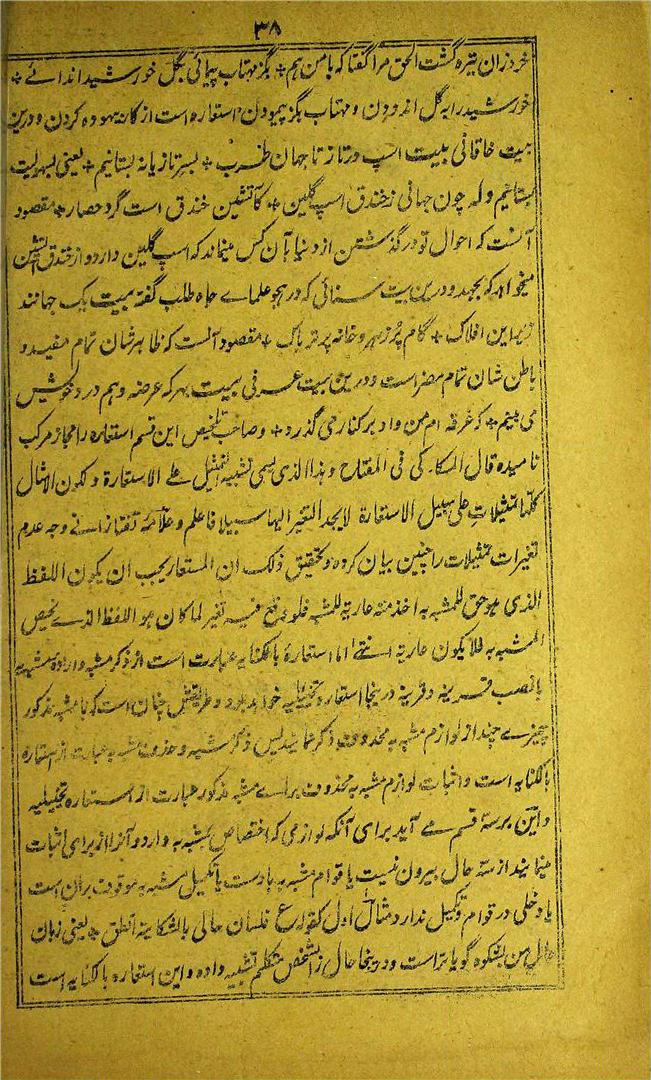 ۳۸
خرد زان تیره گشت الحق مرا گفتا که با من هم * بگز مهتاب پیمائی بگل خورشید اندائے *
خورشید را به گل اندودن و مهتاب بگز پیمودن استعاره است از کار بیهوده کردن و درین
بیت خاقانی بیت اسپ در تاز تا جهان طرب * بسر تازیانه بستانیم * یعنی بسهولیت
بستانیم وله چون جهانی ز خندق اسپ گلین * کاتشین خندق است گرد حصار * مقصود
آنست که احوال تو در گذشتن از دنیا بآن کس میماند که اسپ گلین دارد و از خندق آتشین
میخواهد که بجهد و درین بیت سنائی که در هجو علماے جاه طلب گفته بیت یک جهانند
زیر این افلاک * کام پر زهر و خانه پر تریاک * مقصود آنست که ظاهر شان تمام مفید و
باطن شان تمام مضر است و درین بیت عرفی بیت بهر که عرضه دهم درد خویش
می بینم * که غرقه ام من و او بر کنار می گذرد * و صاحب تلخیص این قسم استعاره را مجاز مرکب
نامیده قال السکاکی فی المفتاح و هذا الذی یسمی تشبیه التمثیل علے الاستعارة و لکون الامثال
کلها تمثیلات علی سبیل الاستعارة لا یجد التغیر الیها سبیلا فاعلم و علامه تفتازانے وجه عدم
تغیرات تمثیلات را چنین بیان کرده و تحقیق ذلک ان المستعار یجب ان یکون اللفظ
الذی هو حق للمشبه به اخذ منه عاریة للمشبه فلو وقع فیه تغیر لما کان هو اللفظ الذے یخص
المشبه به فلا یکون عاریة انتهے اما استعارۀ بالکنایه عبارت است از ذکر مشبه و ارادۀ مشبه به
با نصب قرینه و قرینه درینجا استعاره تخییلیه خواهد بود و طریقش چنان است که با مشبه مذکور
چیزے چند از لوازم مشبه به محذوف ذکر نمایند پس ذکر مشبه و حذف مشبه به عبارت از استعاره
بالکنایه است و اثبات لوازم مشبه به محذوف براے مشبه مذکور عبارت از استعاره تخییلیه
و این بر سه قسم مے آید براى آنکه لوازمی که اختصاص بمشبه به دارد و آنرا از براى اثبات
مینمایند از سه حال بیرون نیست یا قوام مشبه به بادست یا تکمیل مشبه به موقوف بران است
یا دخلی در قوام و تکمیل ندارد مثال اول کقولہ ع فلسان حالی بالشکایة انطق * یعنی زبان
حال من بشکوه گویا تر است و درینجا حال را بشخص متکلم تشبیه داده و این استعاره بالکنایه است